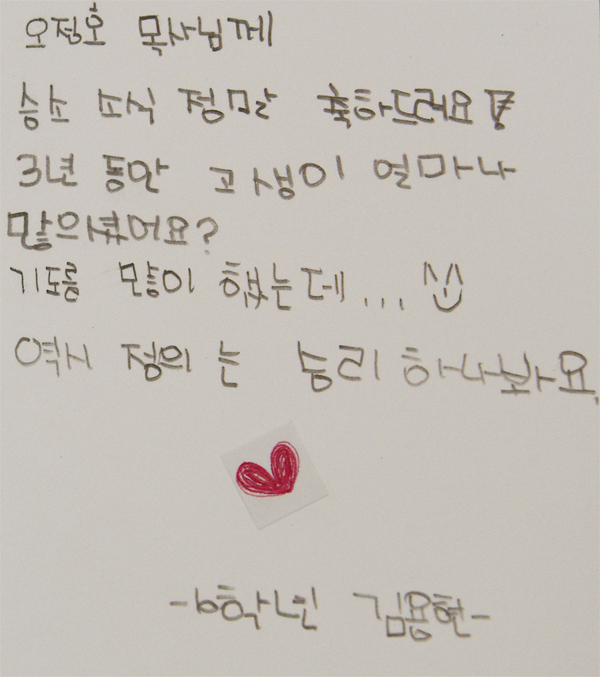 오정호 목사님께
승소 소식 정말 축하드려요!
3년 동안 고생이 얼마나
많으셨어요?
기도를 많이 했는데... ^^
역시 정의는 승리하나봐요.
-6학년 김용현-